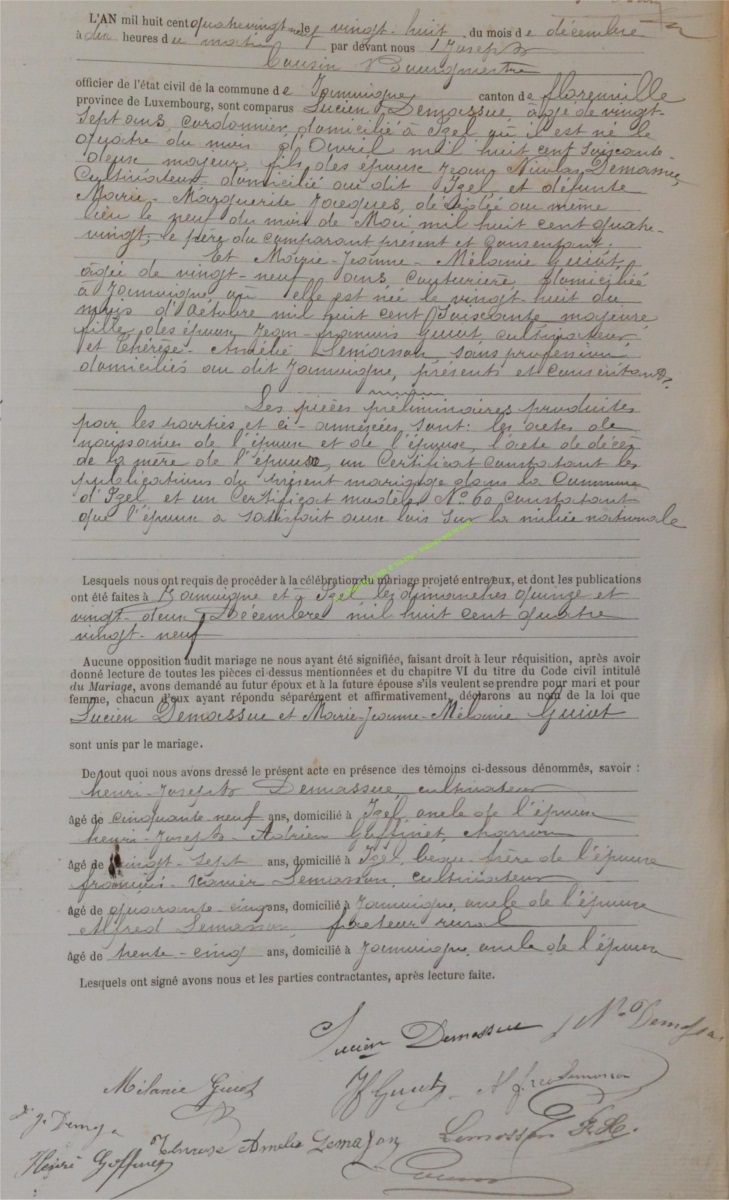 L'AN mil huit cent quatrevingt neuf le vingt-huit du mois de décembre
à dix heures du matin par devant nous Joseph
Cousin Bourgmestre
officier de l'état civil de la commune de Jamoigne canton de florenville
province de Luxembourg, sont comparus Lucien Demassue, âgé de vingt-
sept ans, cordonnier, domicilié à Izel où il est né le
quatre du mois d'Avril mil huit cent soixante-
deux majeur, fils des époux Jean Nicolas Demassue,
Cultivateur domicilié au dit Izel, et défunte
Marie-Marguerite Jacques, décédée au même
lieu le neuf du mois de Mai mil huit cent quatre-
vingt, le père du comparant présent et consentant;
Et Marie-Jeanne-Mélanie Guiot,
âgée de vingt-neuf ans, couturière, domiciliée
à Jamoigne où elle est née le vingt-huit du
mois d'Octobre mil huit cent soixante majeure
fille des époux Jean-françois Guiot, cultivateur
et Thérèse-Amélie Lemasson, sans profession
domiciliés au dit Jamoigne, présents et consentants.
Les pièces préliminaires produites
par les parties et ci-annexées sont: les actes de
naissances de l'époux et de l'épouse, l'acte de décès
de la mère de l'époux, un Certificat constatant les
publications du présent mariage dans la Commune
d'Izel et un Certificat modèle No. 60 constatant
que l'époux a satisfait aux lois sur la milice nationale
Lesquels nous ont requis de procéder à la célébration du mariage projeté entre eux, et dont les publications
ont été faites à Jamoigne et à Izel les dimanches quinze et
vingt-deux Décembre mil huit cent quatre
vingt-neuf
Aucune opposition audit mariage ne nous ayant été signifiée, faisant droit à leur réquisition, après avoir
donné lecture de toutes les pièces ci-dessus mentionnées et du chapitre VI du titre du Code civil intitulé
du Mariage, avons demandé au futur époux et à la future épouse s'ils veulent se prendre pour mari et pour
femme, chacun d'eux ayant répondu séparément et affirmativement, déclarons au nom de la loi que
Lucien Demassue et Marie-Jeanne-Mélanie Guiot
sont unis par le mariage.
De tout quoi nous avons dressé le présent acte en présence des témoins ci-dessous dénommés, savoir :
henri-Joseph Demassue, cultivateur
âgé de cinquante neuf ans, domicilié à Izel, oncle de l'époux
henri-Joseph-Adrien Goffinet, charron
âgé de vingt-sept ans, domicilié à Izel, beau-frère de l'époux
françois-Xavier Lemasson, cultivateur
âgé de quarante-cinq ans, domicilié à Jamoigne, oncle de l'épouse
Alfred Lemasson, facteur rural
âgé de trente-cinq ans, domicilié à Jamoigne, oncle de l'épouse
Lesquels ont signé avons nous et les parties contractantes, après lecture faite.
Lucien Demassue
Mélanie Guiot
J F Guiot
Alfred Lemasson
Lemasson F.X.
Thérèse Amélie Lemason
Henri Goffinet
Cousin